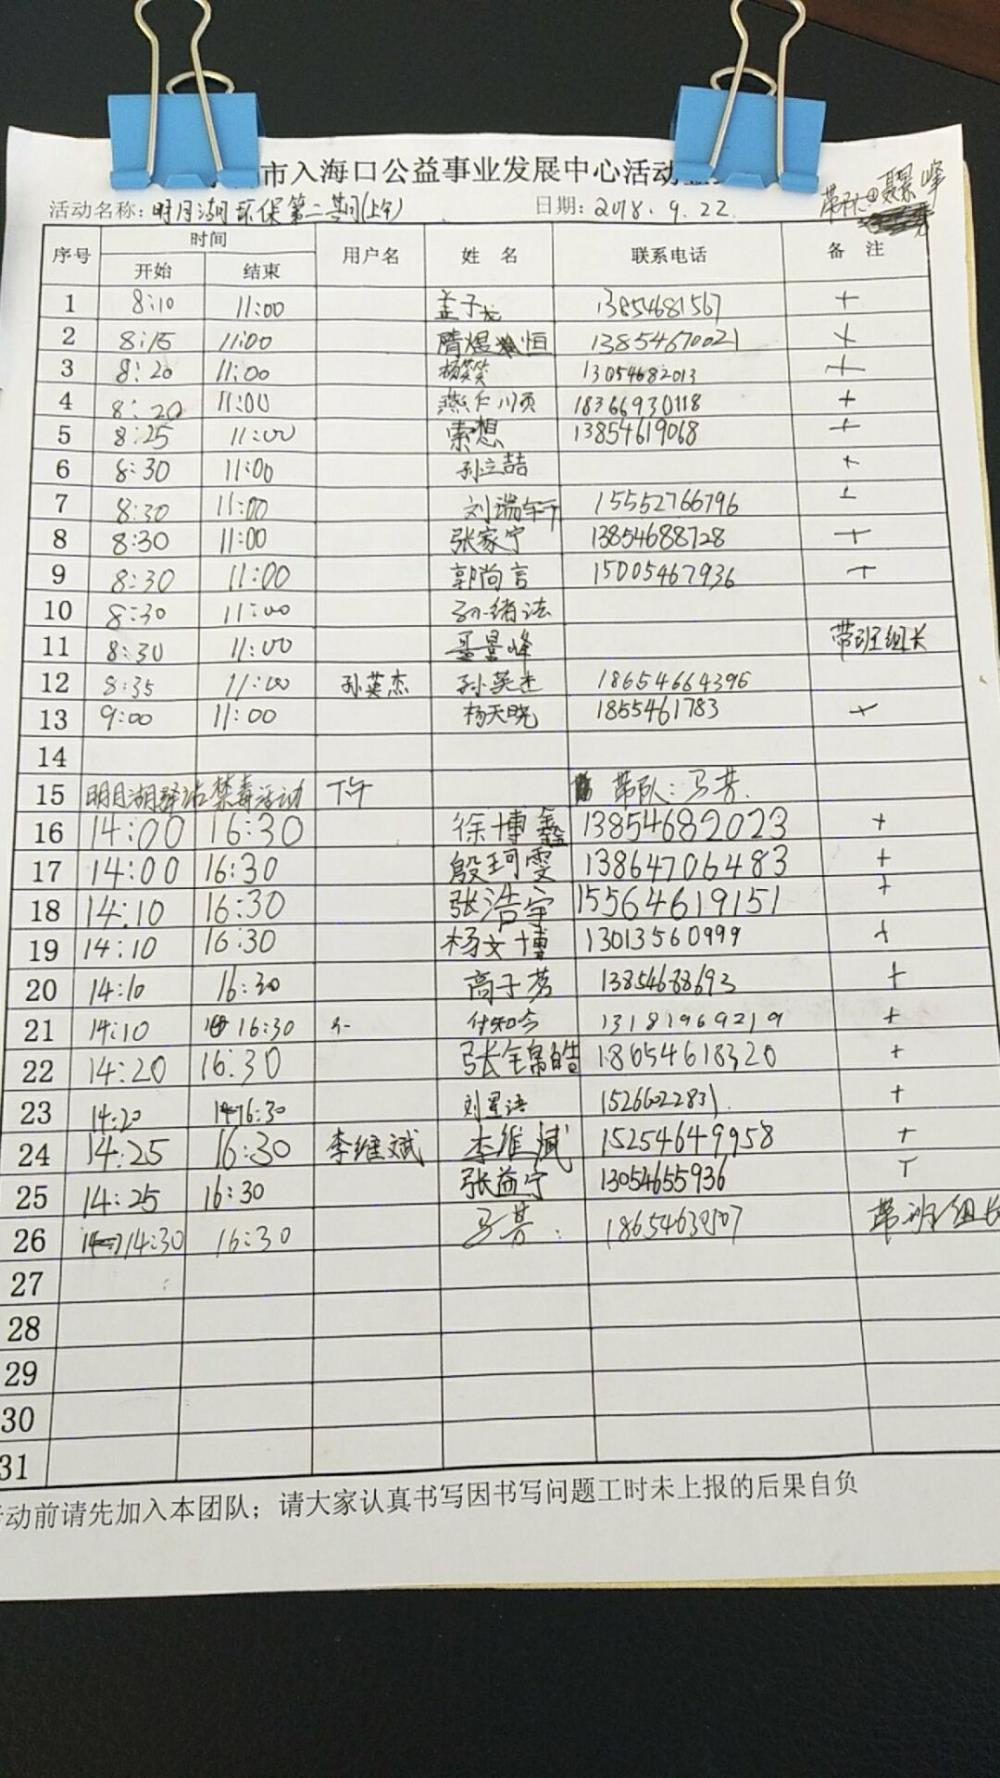 市入海口公益事业发展中心活动
活动名称：明月湖环保第二期(上午) 日期：2018.9.22 带队:聂景峰
序号 时间 用户名 姓名 联系电话 备注
开始 结束
1 8:10 11:00 盖子龙 13854681567 +
2 8:15 11:00 隋煜恒 13854670021 +
3 8:20 11:00 杨笑笑 13054682013 +
4 8:20 11:00 燕仁顺 18366930118 +
5 8:25 11:00 索想 13854619068 +
6 8:30 11:00 孙立喆 +
7 8:30 11:00 刘瑞轩 15552766796 +
8 8:30 11:00 张家宁 13854688728 +
9 8:30 11:00 郭尚言 15005467936 +
10 8:30 11:00 孙绪法
11 8:30 11:00 聂景峰 带班组长
12 8:35 11:00 孙英杰 孙英杰 18654664396
13 9:00 11:00 杨天晓 1855461783 +
14
15 明月湖驿站禁毒活动 下午 带队：马芳
16 14:00 16:30 徐博鑫 13854682023 +
17 14:00 16:30 殷珂雯 13864706483 +
18 14:10 16:30 张浩宇 15564619151 +
19 14:10 16:30 杨文博 13013560999 +
20 14:10 16:30 高子茗 13854688693 +
21 14:10 16:30 付知今 13181969219 +
22 14:20 16:30 张锦皓 18654618320 +
23 14:20 16:30 刘星语 15266022831 +
24 14:25 16:30 李维斌 李维斌 15254649958 +
25 14:25 16:30 张益宁 13054655936 +
26 14:30 16:30 马芳 带班组长
27
28
29
30
31
动前请先加入本团队；请大家认真书写因书写问题工时未上报的后果自负